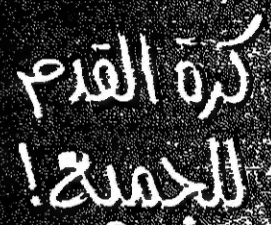 كرة القدم
للجميع!